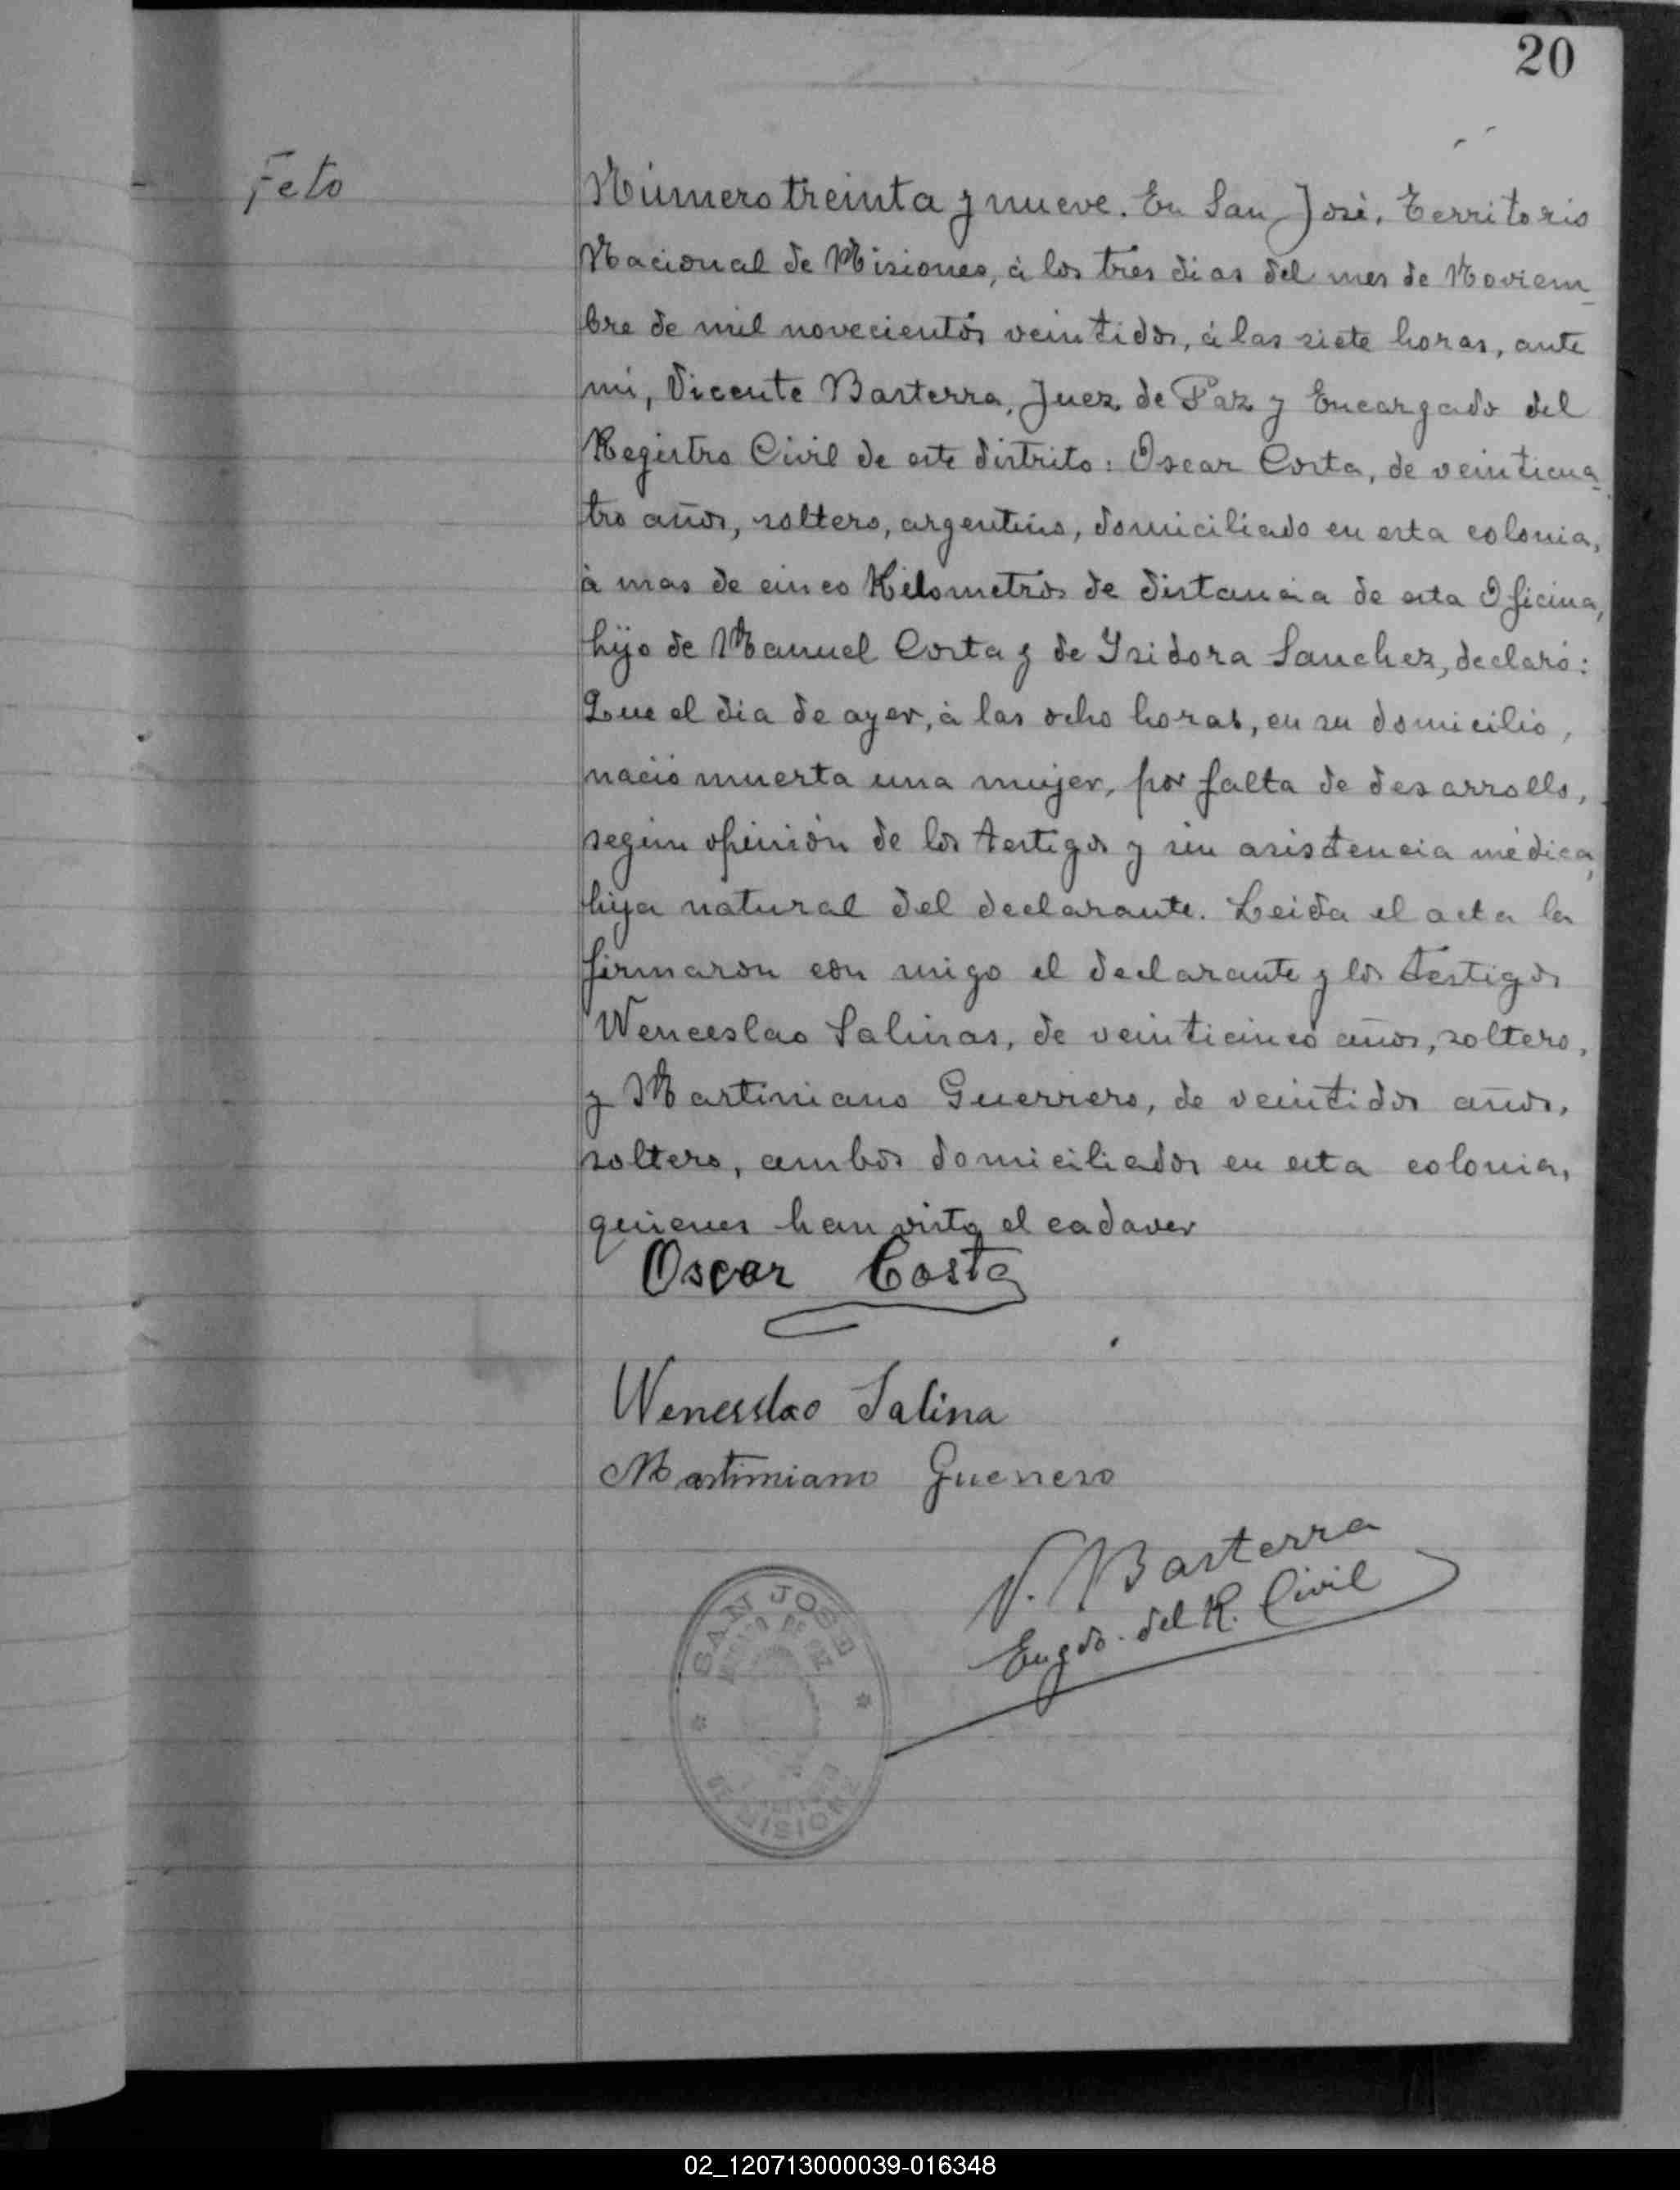 20
Feto
Número treinta y nueve. En San José, Territorio
Nacional de Misiones, á los tres dias del mes de Noviem-
bre de mil novecientos veintidos, á las siete horas, ante
mi, Vicente Basterra, Juez de Paz y Encargado del
Registro Civil de este distrito: Oscar Costa, de veinticua-
tro años, soltero, argentino, domiciliado en esta colonia,
á mas de cinco Kilometros de distancia de esta Oficina,
hijo de Manuel Costa y de Ysidora Sanchez, declaró:
Que el dia de ayer, á las ocho horas, en su domicilio,
nació muerta una mujer, por falta de desarrollo,
según opinión de los testigos y sin asistencia médica,
hija natural del declarante. Leida el acta la
firmaron con migo el declarante y los testigos
Wenceslao Salinas, de veinticinco años, soltero,
y Martiniano Guerrero, de veintidos años,
soltero, ambos domiciliados en esta colonia,
quienes han visto el cadaver
Oscar Costa
Wenesslao Salina
Martiniano Guerrero
V. Basterra
Engdo. del R. Civil
SAN JOSE
DE MISIONES
02_120713000039-016348